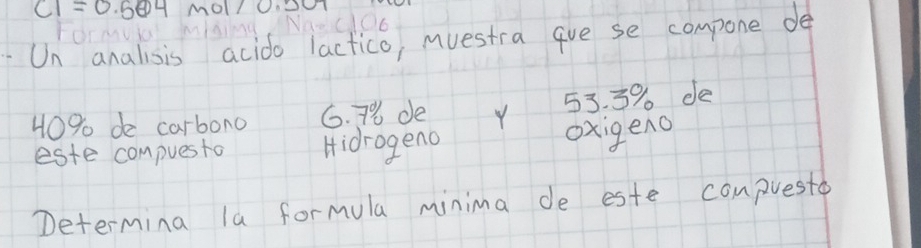 Cl = 0.504 mol / 0.504
Formula minima Na - ClO6
Un analisis acido lactico, muestra que se compone de
40% de carbono 6.7% de Y 53.3% de
este compuesto Hidrogeno oxigeno
Determina la formula minima de este compuesto